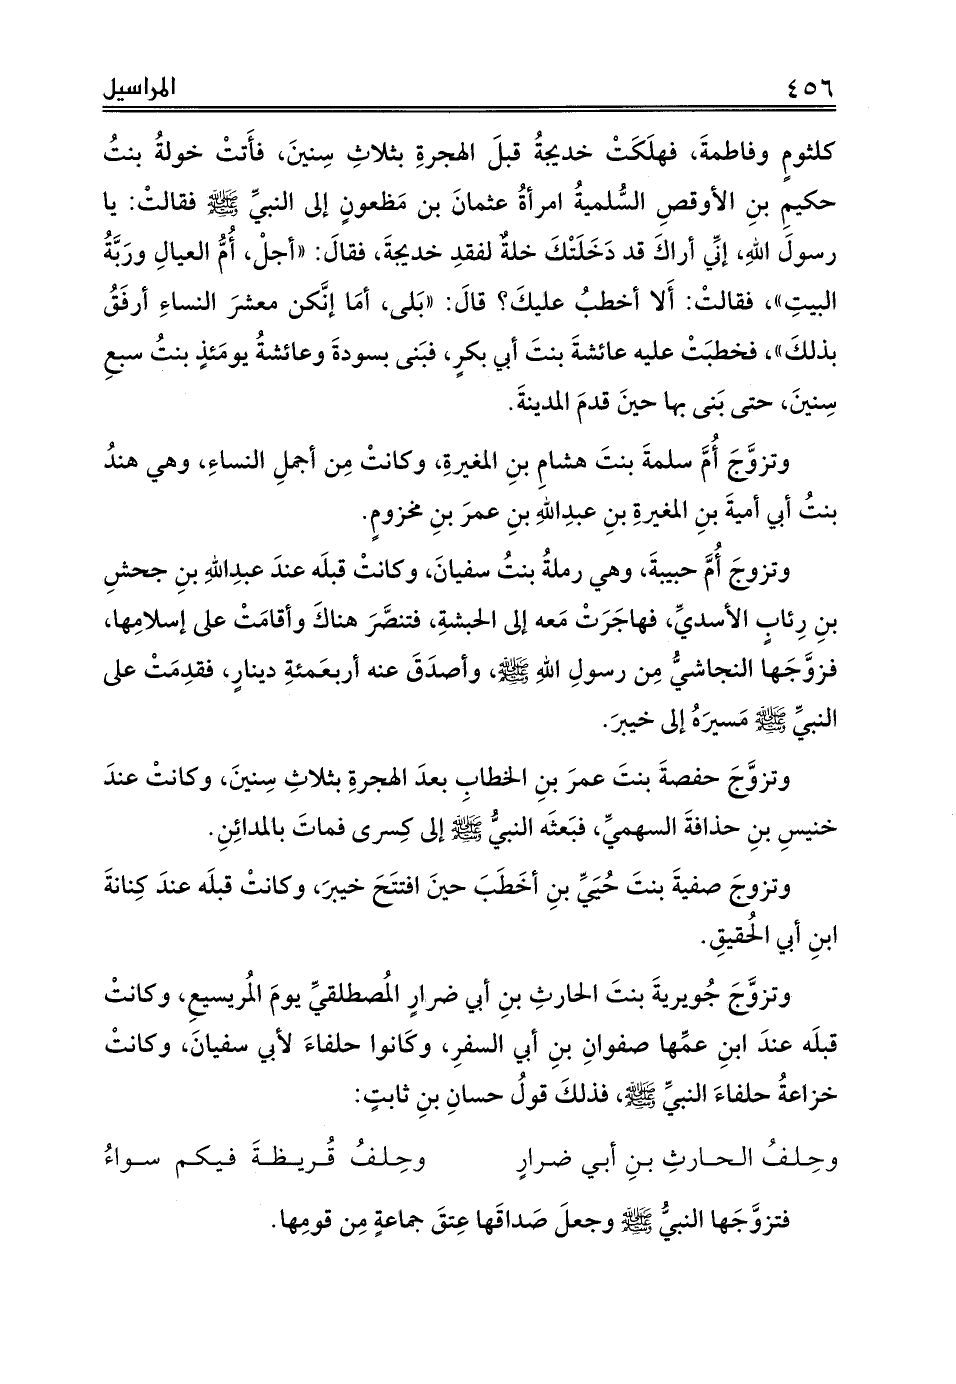 ٤٥٦ المراسيل
كلثومٍ وفاطمةَ، فهلَكَتْ خديجةُ قبلَ الهجرةِ بثلاثِ سِنينَ، فأَتتْ خولةُ بنتُ
حكيمِ بنِ الأوقصِ السُّلميةُ امرأةُ عثمانَ بن مَظعونٍ إلى النبيِّ ﷺ فقالتْ: يا
رسولَ اللهِ، إنِّي أراكَ قد دَخَلَتْكَ خلةٌ لفقدِ خديجةَ، فقالَ: «أجلْ، أُمُّ العيالِ وربَّةُ
البيتِ»، فقالتْ: أَلا أخطبُ عليكَ؟ قالَ: «بَلى، أمَا إنَّكن معشرَ النساءِ أرفَقُ
بذلكَ»، فخطبَتْ عليه عائشةَ بنتَ أبي بكرٍ، فبَنى بسودةَ وعائشةُ يومَئذٍ بنتُ سبعِ
سِنينَ، حتى بَنى بها حينَ قدمَ المدينةَ.
وتزوَّجَ أُمَّ سلمةَ بنتَ هشامِ بنِ المغيرةِ، وكانتْ مِن أجملِ النساءِ، وهي هندُ
بنتُ أبي أميةَ بنِ المغيرةِ بنِ عبدِاللهِ بنِ عمرَ بنِ مخزومٍ.
وتزوجَ أُمَّ حبيبةَ، وهي رملةُ بنتُ سفيانَ، وكانتْ قبلَه عندَ عبدِاللهِ بنِ جحشِ
بنِ رِئابٍ الأسديِّ، فهاجَرَتْ مَعه إلى الحبشةِ، فتنصَّرَ هناكَ وأقامَتْ على إسلامِها،
فزوَّجَها النجاشيُّ مِن رسولِ اللهِ ﷺ، وأصدَقَ عنه أربعَمئةِ دينارٍ، فقدِمَتْ على
النبيِّ ﷺ مَسيرَهُ إلى خيبرَ.
وتزوَّجَ حفصةَ بنتَ عمرَ بنِ الخطابِ بعدَ الهجرةِ بثلاثِ سِنينَ، وكانتْ عندَ
خنيسِ بنِ حذافةَ السهميِّ، فبَعثَه النبيُّ ﷺ إلى كِسرى فماتَ بالمدائنِ.
وتزوجَ صفيةَ بنتَ حُيَيِّ بنِ أخطَبَ حينَ افتتَحَ خيبرَ، وكانتْ قبلَه عندَ كِنانةَ
ابنِ أبي الحُقيقِ.
وتزوَّجَ جُويريةَ بنتَ الحارثِ بنِ أبي ضرارٍ المُصطلقيِّ يومَ المُريسيعِ، وكانتْ
قبلَه عندَ ابنِ عمِّها صفوانِ بنِ أبي السفرِ، وكَانوا حلفاءَ لأبي سفيانَ، وكانتْ
خزاعةُ حلفاءَ النبيِّ ﷺ، فذلكَ قولُ حسانِ بنِ ثابتٍ:
وحِلفُ الحارثِ بنِ أبي ضرارٍ وحِلفُ قُريظةَ فيكم سواءُ
فتزوَّجَها النبيُّ ﷺ وجعلَ صَداقَها عِتقَ جماعةٍ مِن قومِها.